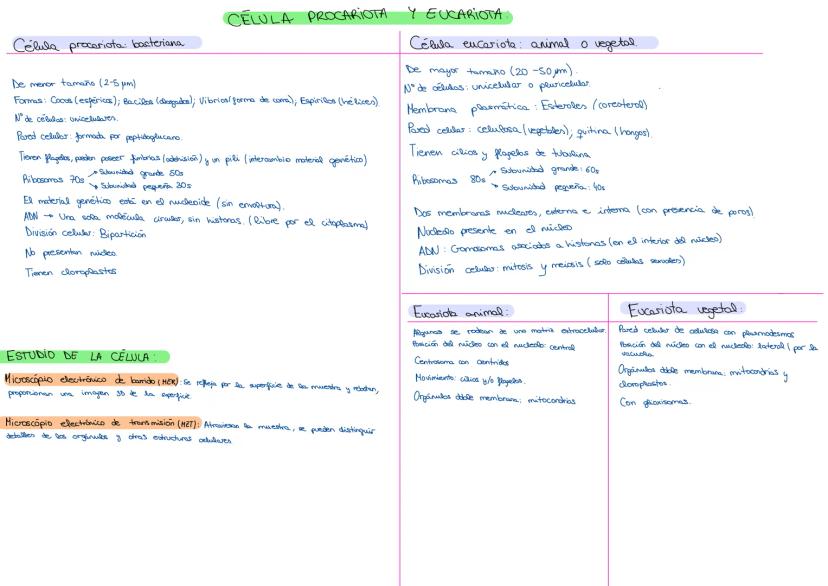 CÉLULA PROCARIOTA Y EUCARIOTA:
Célula procariota: bacteriana
De menor tamaño (2-5 µm)
Formas: Cocos (esféricos); Bacilos (alargados); Vibrios (forma de coma); Espirilos (hélices).
Nº de células: unicelulares.
Pared celular: formada por peptidoglucano.
Tienen flagelos, pueden poseer fimbrias (adhesión) y un pili (intercambio material genético)
Ribosomas 70s → Subunidad grande 50s
→ Subunidad pequeña 30s
El material genético está en el nucleoide (sin envoltura).
ADN → Una sola molécula circular, sin histonas. (libre por el citoplasma)
División celular: Bipartición
No presentan núcleo.
Tienen cloroplastos
ESTUDIO DE LA CÉLULA:
Microscópio electrónico de barrido (MEB): Se refleja por la superficie de la muestra y rebotan,
proporcionan una imagen 3D de la superficie.
Microscópio electrónico de transmisión (MET): Atraviesan la muestra, se pueden distinguir
detalles de los orgánulos y otras estructuras celulares.
Célula eucariota: animal o vegetal
De mayor tamaño (20-50 µm).
Nº de células: unicelular o pluricelular.
Membrana plasmática: Esteroles (coresterol)
Pared celular: celulosa (vegetales); quitina (hongos).
Tienen cilios y flagelos de tubulina
Ribosomas 80s → Subunidad grande: 60s
→ Subunidad pequeña: 40s
Dos membranas nucleares, externa e interna (con presencia de poros)
Nucleolo presente en el núcleo
ADN: Cromosomas asociados a histonas (en el interior del núcleo)
División celular: mitosis y meiosis (solo células sexuales)
Eucariota animal:
Algunas se rodean de una matriz extracelular.
Posición del núcleo con el nucleolo: central
Centrosoma con centriolos
Movimiento: cilios y/o flagelos.
Orgánulos doble membrana: mitocondrias
Eucariota vegetal:
Pared celular de celulosa con plasmodesmos
Posición del núcleo con el nucleolo: lateral (por la
vacuola.
Orgánulos doble membrana: mitocondrias y
cloroplastos.
Con glioxisomas.